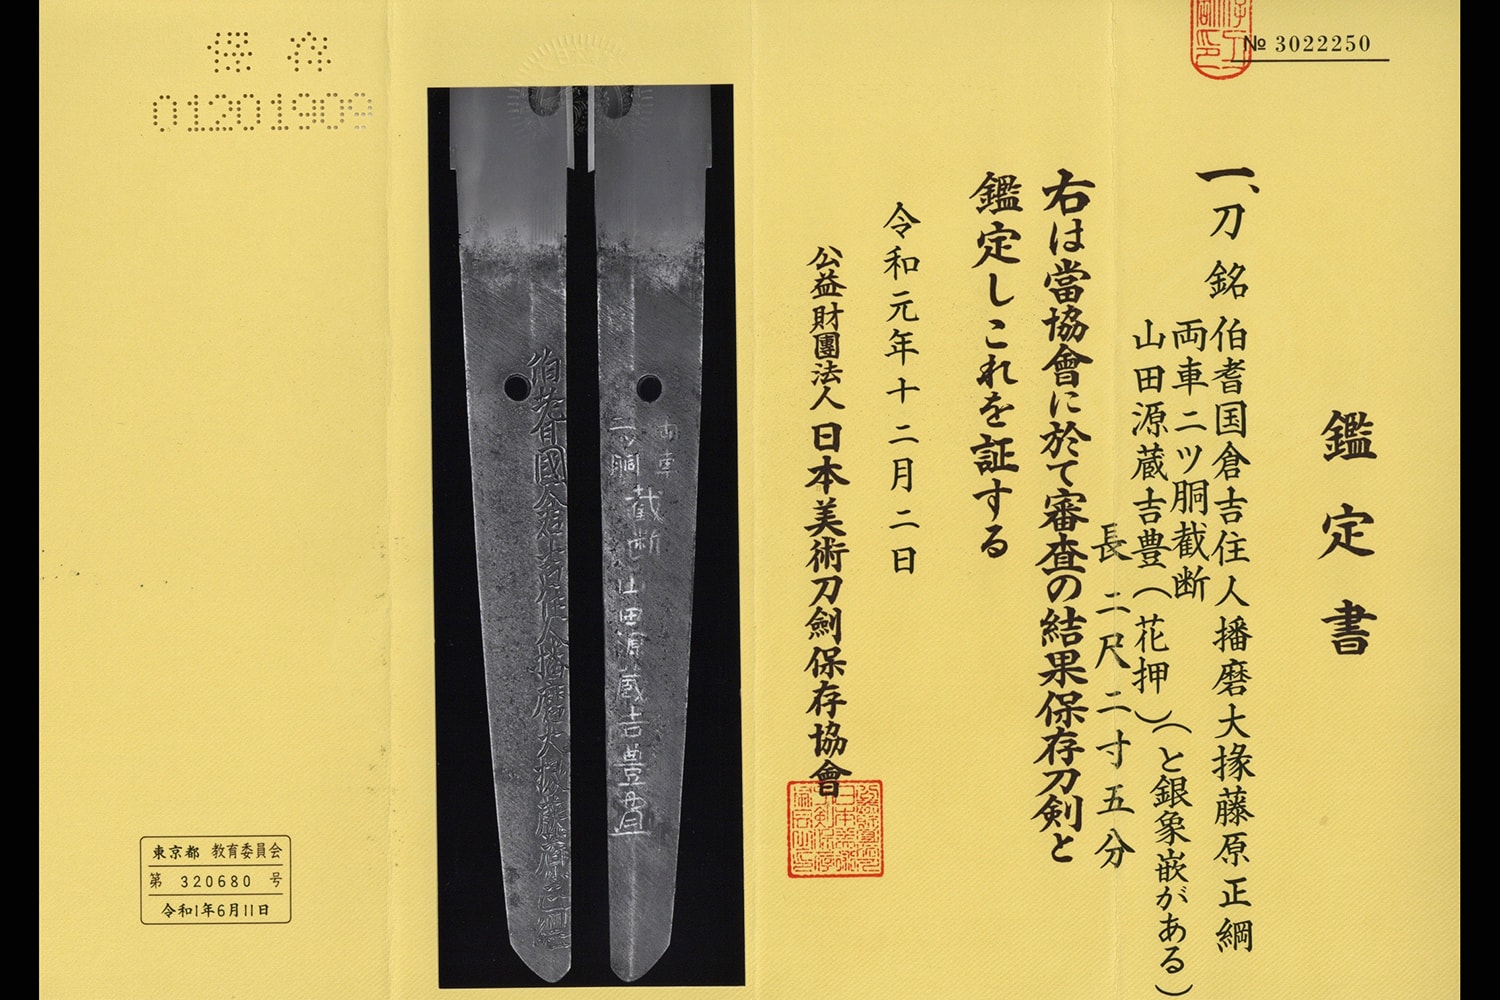 № 3022250
鑑定書
一、刀 銘 伯耆国倉吉住人播磨大掾藤原正綱
両車二ツ胴截断
山田源蔵吉豊(花押)(と銀象嵌がある)
長 二尺二寸五分
右は當協會に於て審査の結果保存刀剣と
鑑定しこれを証する
令和元年十二月二日
公益財團法人 日本美術刀劍保存協會
両車
二ツ胴
截断 山田源蔵吉豊
保存
0120190
東京都 教育委員会
第 320680 号
令和1年6月11日